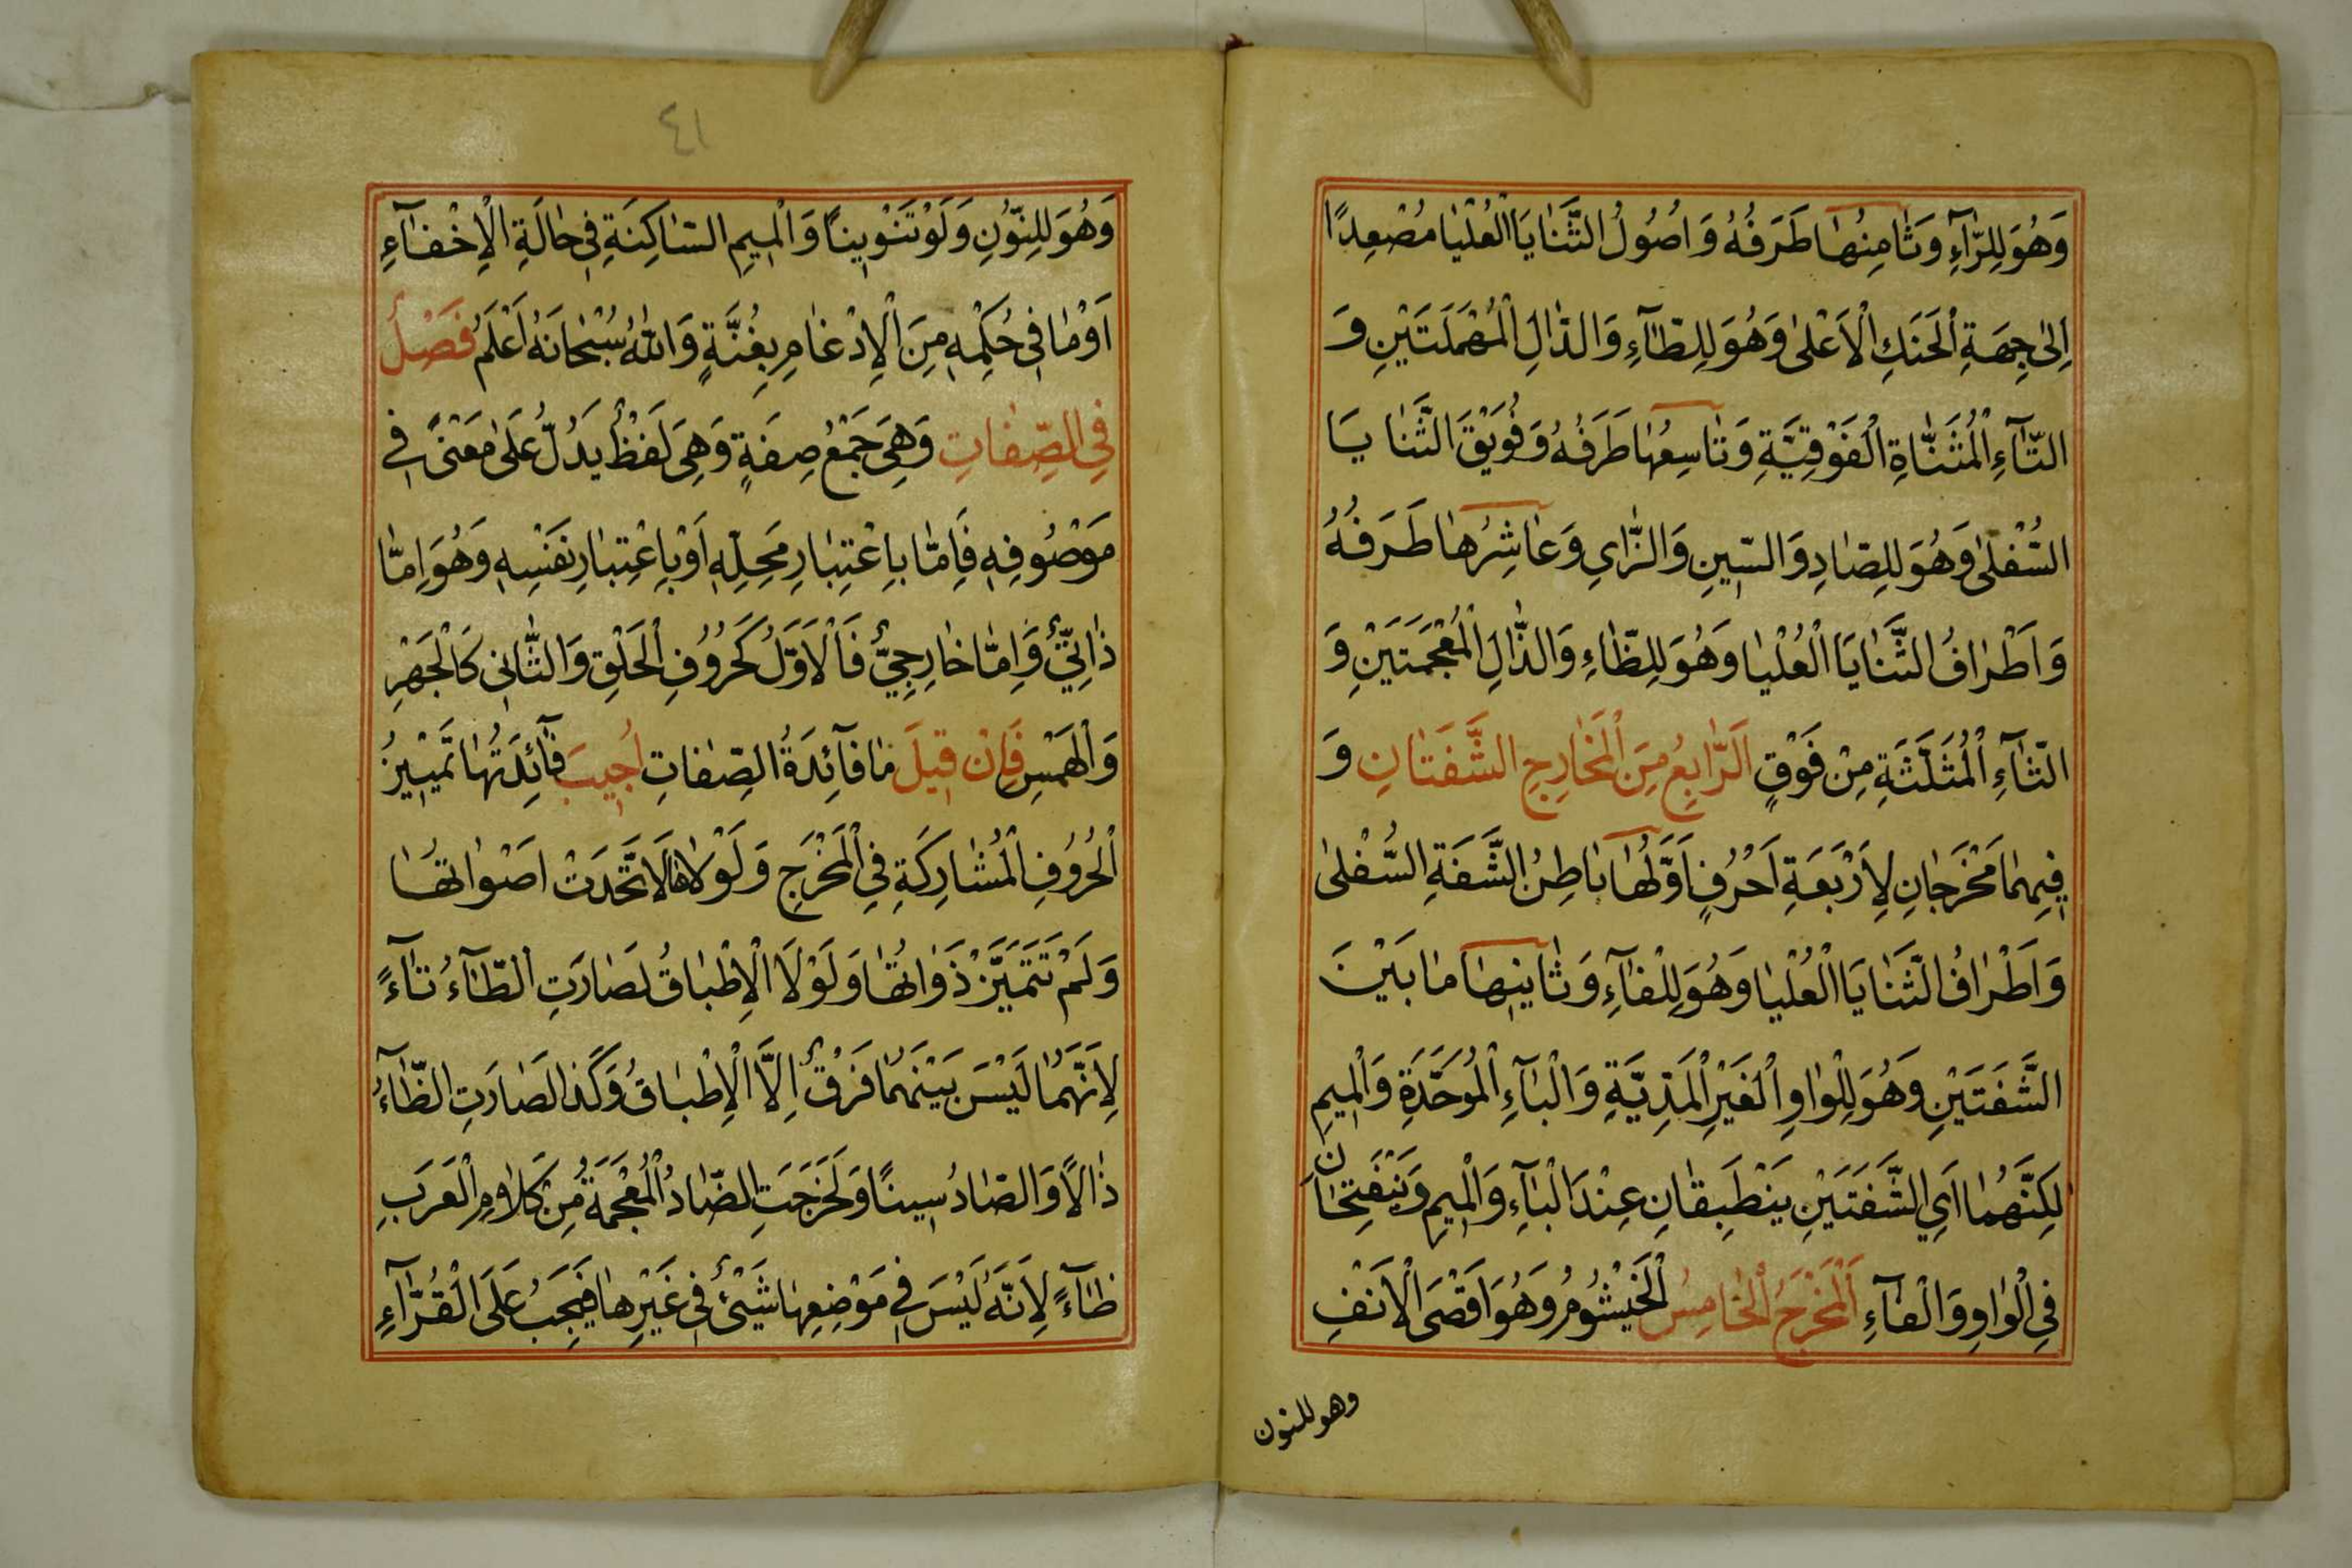 وَهُوَ لِلرَّآءِ وَثَامِنُهَا طَرَفُهُ وَاُصُولُ الثَّنَايَا الْعُلْيَا مُصْعِدًا
اِلىٰ جِهَةِ الْحَنَكِ الْاَعْلىٰ وَهُوَ لِلطَّآءِ وَالدَّالِ الْمُهْمَلَتَيْنِ وَ
التَّآءِ الْمُثَنَّاةِ الْفَوْقِيَّةِ وَتَاسِعُهَا طَرَفُهُ وَفُوَيْقَ الثَّنَايَا
السُّفْلىٰ وَهُوَ لِلصَّادِ وَالسِّينِ وَالزَّايِ وَعَاشِرُهَا طَرَفُهُ
وَاَطْرَافُ الثَّنَايَا الْعُلْيَا وَهُوَ لِلظَّاءِ وَالذَّالِ الْمُعْجَمَتَيْنِ وَ
الثَّآءِ الْمُثَلَّثَةِ مِنْ فَوْقٍ اَلرَّابِعُ مِنَ الْمَخَارِجِ الشَّفَتَانِ وَ
فِيهِمَا مَخْرَجَانِ لِاَرْبَعَةِ اَحْرُفٍ اَوَّلُهَا بَاطِنُ الشَّفَةِ السُّفْلىٰ
وَاَطْرَافُ الثَّنَايَا الْعُلْيَا وَهُوَ لِلْفَآءِ وَثَانِيهَا مَا بَيْنَ
الشَّفَتَيْنِ وَهُوَ لِلْوَاوِ الْغَيْرِ الْمَدِّيَّةِ وَالْبَآءِ الْمُوَحَّدَةِ وَالْمِيمِ
لٰكِنَّهُمَا اَيِ الشَّفَتَيْنِ يَنْطَبِقَانِ عِنْدَ الْبَآءِ وَالْمِيمِ وَيَنْفَتِحَانِ
فِي الْوَاوِ وَالْفَآءِ اَلْمَخْرَجُ الْخَامِسُ الْخَيْشُومُ وَهُوَ اَقْصَى الْاَنْفِ
وهو للنون
٤١
وَهُوَ لِلنُّونِ وَلَوْ تَنْوِينًا وَالْمِيمِ السَّاكِنَةِ فِي حَالَةِ الْاِخْفَآءِ
اَوْ مَا فِي حُكْمِهِ مِنَ الْاِدْغَامِ بِغُنَّةٍ وَاللّٰهُ سُبْحَانَهُ اَعْلَمُ فَصْلٌ
فِي الصِّفَاتِ وَهِيَ جَمْعُ صِفَةٍ وَهِيَ لَفْظٌ يَدُلُّ عَلىٰ مَعْنًى فِي
مَوْصُوفِهِ فَاِمَّا بِاعْتِبَارِ مَحِلِّهِ اَوْ بِاعْتِبَارِ نَفْسِهِ وَهُوَ اِمَّا
ذَاتِيٌّ وَاِمَّا خَارِجِيٌّ فَالْاَوَّلُ كَحُرُوفِ الْحَلْقِ وَالثَّانِي كَالْجَهْرِ
وَالْهَمْسِ فَاِنْ قِيلَ مَا فَآئِدَةُ الصِّفَاتِ اُجِيبَ فَآئِدَتُهَا تَمْيِيزُ
الْحُرُوفِ الْمُشَارِكَةِ فِي الْمَخْرَجِ وَلَوْلَاهَا لَاتَّحَدَتْ اَصْوَاتُهَا
وَلَمْ تَتَمَيَّزْ ذَوَاتُهَا وَلَوْلَا الْاِطْبَاقُ لَصَارَتِ الطَّآءُ تَآءً
لِاَنَّهُمَا لَيْسَ بَيْنَهُمَا فَرْقٌ اِلَّا الْاِطْبَاقُ وَكَذَا لَصَارَتِ الظَّآءُ
ذَالًا وَالصَّادُ سِينًا وَلَخَرَجَتِ الضَّادُ الْمُعْجَمَةُ مِنْ كَلَامِ الْعَرَبِ
ظَآءً لِاَنَّهُ لَيْسَ فِي مَوْضِعِهَا شَيْئٌ فِي غَيْرِهَا فَيَجِبُ عَلَى الْقُرَّآءِ